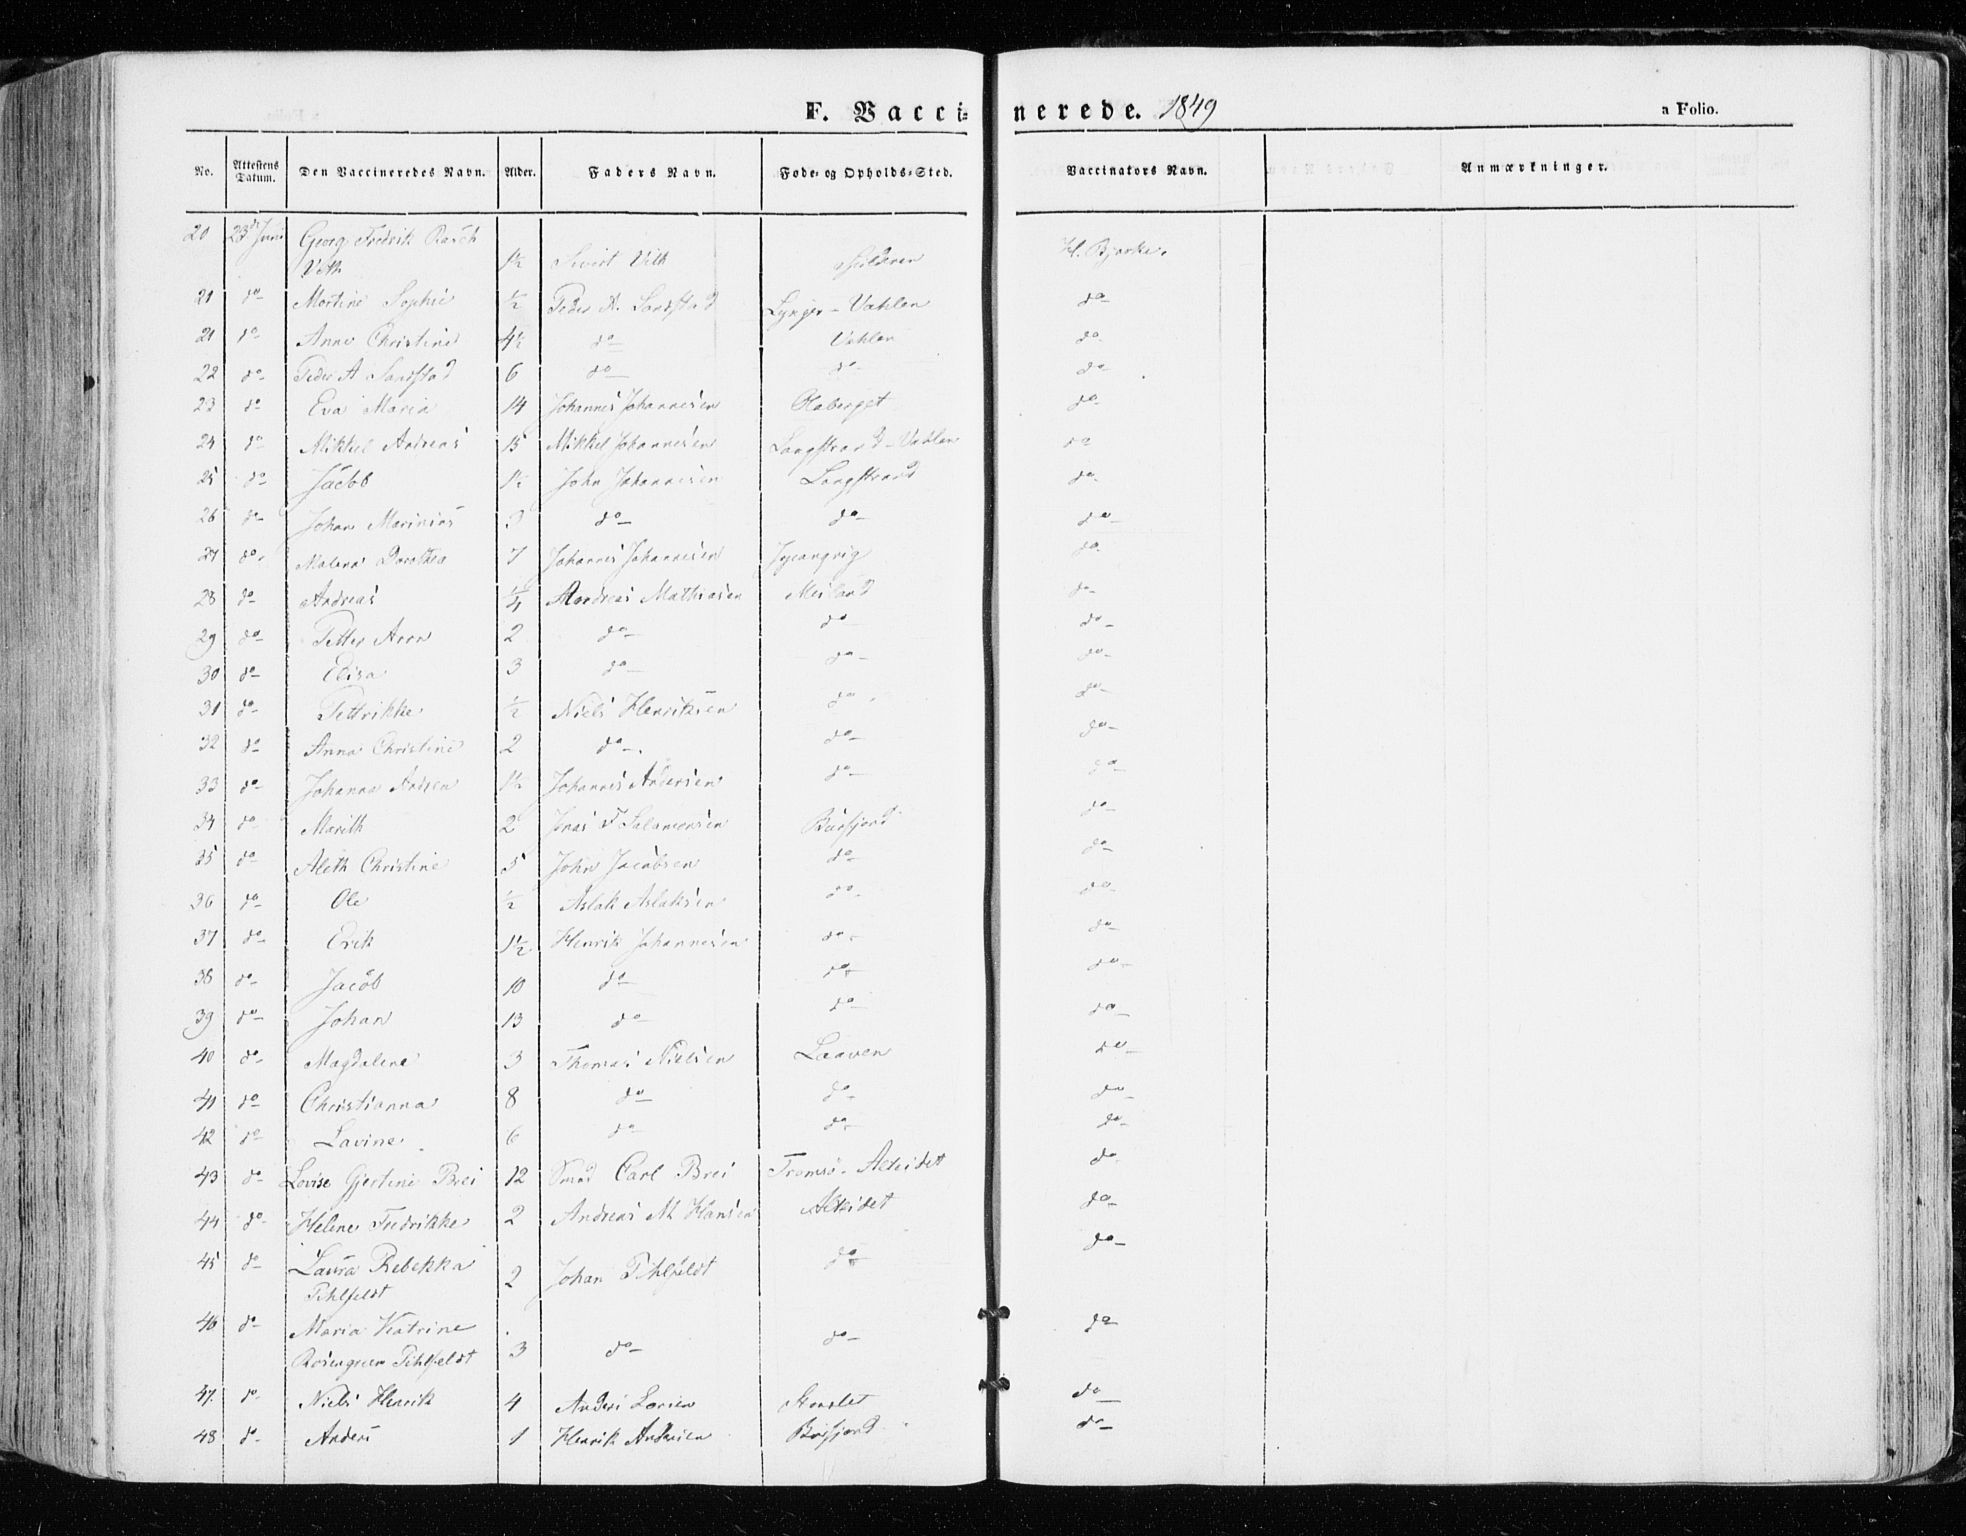 F. Vaccinerede. 1849
a Folio.
No. Attestens Datum. Den Vaccineredes Navn. Alder. Faders Navn. Føde- og Opholds-Sted. Vaccinators Navn. Anmærkninger.
20 23de Juni Georg Fredrik Rasch
Veth 1½ Sivert Veth H. Bjerke.
21 do Martine Sophie ½ Peder A. Sandstad Lynger - Vahlen do
21 do Anne Christine 4½ do Vahlen do
22 do Peder A Sandstad 6 do do do
23 do Eva Maria 14 Johannes Johannesen Olaberget do
24 do Mikkel Andreas 15 Mikkel Johannesen Langstrand - Vahlen do
25 do Jacob 1½ John Johannesen Langstrand do
26 do Johan Marinius 3 do do do
27 do Malena Dorothea 7 Johannes Johannesen do
28 do Andreas ¼ Andreas Mathiasen Meiland do
29 do Petter Aron 2 do do do
30 do Elisa 3 do do do
31 do Pettrikke ½ Niels Henriksen do do
32 do Anna Christine 2 do do do
33 do Johanna Andrea 1½ Johannes Andersen do do
34 do Marith 2 Jonas F Salamonsen Burfjord do
35 do Aleth Christine 5 John Jacobsen do do
36 do Ole ½ Aslak Aslaksen do do
37 do Erik 1½ Henrik Johannesen do do
38 do Jacob 10 do do do
39 do Johan 13 do do do
40 do Magdalene 3 Thomas Nielsen Laaven do
41 do Christianna 8 do do do
42 do Lavine 6 do do do
43 do Lovise Gjertine Brei 12 Smed Carl Brei Tromsö - Alteidet do
44 do Helene Fredrikke 2 Andreas M Hansen Alteidet do
45 do Laura Rebekka
Pihlfeldt 2 Johan Pihlfeldt do do
46 do Maria Katrine
Rosengreen Pihlfeldt 3 do do do
47. do Niels Henrik 4 Anders Larsen Storslet do
48 do Anders 1 Henrik Andersen Burfjord do